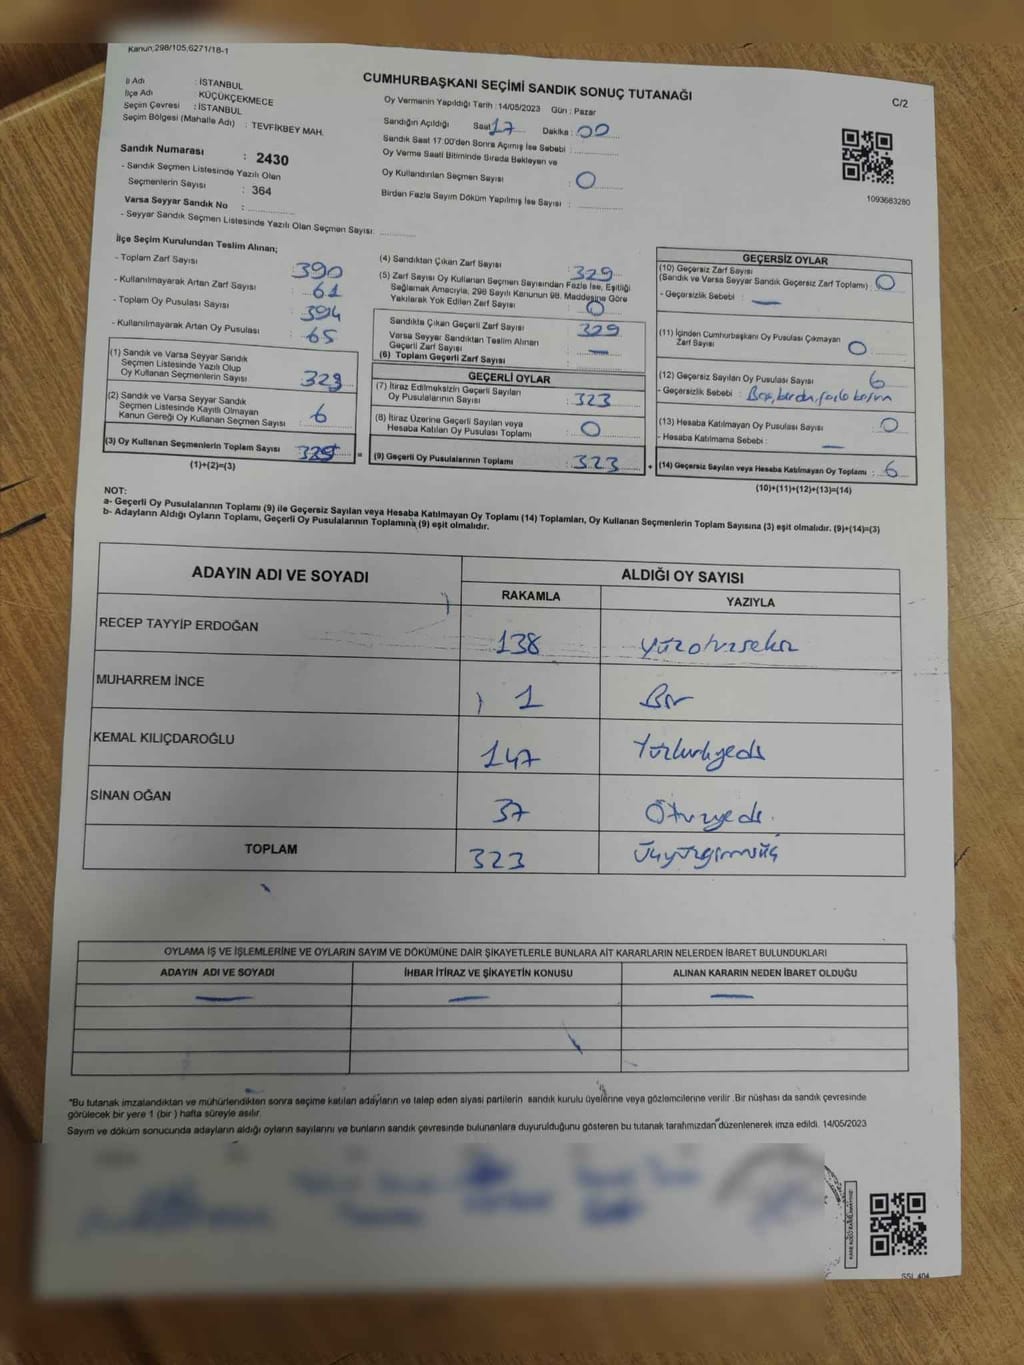 Kanun,298/105,6271/18-1
CUMHURBAŞKANI SEÇİMİ SANDIK SONUÇ TUTANAĞI
C/2
İl Adı : İSTANBUL
İlçe Adı : KÜÇÜKÇEKMECE
Seçim Çevresi : İSTANBUL
Seçim Bölgesi (Mahalle Adı) : TEVFİKBEY MAH.
Sandık Numarası : 2430
- Sandık Seçmen Listesinde Yazılı Olan
Seçmenlerin Sayısı : 364
Varsa Seyyar Sandık No :
- Seyyar Sandık Seçmen Listesinde Yazılı Olan Seçmen Sayısı:
Oy Vermenin Yapıldığı Tarih : 14/05/2023 Gün : Pazar
Sandığın Açıldığı Saat 17 Dakika : 00
Sandık Saat 17:00'den Sonra Açılmış İse Sebebi :
Oy Verme Saati Bitiminde Sırada Bekleyen ve
Oy Kullandırılan Seçmen Sayısı : 0
Birden Fazla Sayım Döküm Yapılmış İse Sayısı :
1093683280
İlçe Seçim Kurulundan Teslim Alınan;
- Toplam Zarf Sayısı : 390
- Kullanılmayarak Artan Zarf Sayısı : 61
- Toplam Oy Pusulası Sayısı : 394
- Kullanılmayarak Artan Oy Pusulası : 65
(1) Sandık ve Varsa Seyyar Sandık
Seçmen Listesinde Yazılı Olup
Oy Kullanan Seçmenlerin Sayısı : 323
(2) Sandık ve Varsa Seyyar Sandık
Seçmen Listesinde Kayıtlı Olmayan
Kanun Gereği Oy Kullanan Seçmen Sayısı : 6
(3) Oy Kullanan Seçmenlerin Toplam Sayısı : 329 =
(1)+(2)=(3)
(4) Sandıktan Çıkan Zarf Sayısı : 329
(5) Zarf Sayısı Oy Kullanan Seçmen Sayısından Fazla İse, Eşitliği
Sağlamak Amacıyla, 298 Sayılı Kanunun 98. Maddesine Göre
Yakılarak Yok Edilen Zarf Sayısı : 0
Sandıkta Çıkan Geçerli Zarf Sayısı : 329
Varsa Seyyar Sandıktan Teslim Alınan
Geçerli Zarf Sayısı : —
(6) Toplam Geçerli Zarf Sayısı :
GEÇERLİ OYLAR
(7) İtiraz Edilmeksizin Geçerli Sayılan
Oy Pusulalarının Sayısı : 323
(8) İtiraz Üzerine Geçerli Sayılan veya
Hesaba Katılan Oy Pusulası Toplamı : 0
(9) Geçerli Oy Pusulalarının Toplamı : 323 +
GEÇERSİZ OYLAR
(10) Geçersiz Zarf Sayısı
(Sandık ve Varsa Seyyar Sandık Geçersiz Zarf Toplamı) : 0
- Geçersizlik Sebebi : —
(11) İçinden Cumhurbaşkanı Oy Pusulası Çıkmayan
Zarf Sayısı : 0
(12) Geçersiz Sayılan Oy Pusulası Sayısı : 6
- Geçersizlik Sebebi : Boş, birden fazla basım
(13) Hesaba Katılmayan Oy Pusulası Sayısı : 0
- Hesaba Katılmama Sebebi : —
(14) Geçersiz Sayılan veya Hesaba Katılmayan Oy Toplamı : 6
(10)+(11)+(12)+(13)=(14)
NOT:
a- Geçerli Oy Pusulalarının Toplamı (9) ile Geçersiz Sayılan veya Hesaba Katılmayan Oy Toplamı (14) Toplamları, Oy Kullanan Seçmenlerin Toplam Sayısına (3) eşit olmalıdır. (9)+(14)=(3)
b- Adayların Aldığı Oyların Toplamı, Geçerli Oy Pusulalarının Toplamına (9) eşit olmalıdır.
ADAYIN ADI VE SOYADI ALDIĞI OY SAYISI
RAKAMLA YAZIYLA
RECEP TAYYİP ERDOĞAN 138 yüzotuzsekiz
MUHARREM İNCE 1 Bir
KEMAL KILIÇDAROĞLU 147 Yüzkırkyedi
SİNAN OĞAN 37 Otuzyedi.
TOPLAM 323 Üçyüzyirmiüç
OYLAMA İŞ VE İŞLEMLERİNE VE OYLARIN SAYIM VE DÖKÜMÜNE DAİR ŞİKAYETLERLE BUNLARA AİT KARARLARIN NELERDEN İBARET BULUNDUKLARI
ADAYIN ADI VE SOYADI İHBAR İTİRAZ VE ŞİKAYETİN KONUSU ALINAN KARARIN NEDEN İBARET OLDUĞU
— — —
"Bu tutanak imzalandıktan ve mühürlendikten sonra seçime katılan adayların ve talep eden siyasi partilerin sandık kurulu üyelerine veya gözlemcilerine verilir .Bir nüshası da sandık çevresinde
görülecek bir yere 1 (bir ) hafta süreyle asılır.
Sayım ve döküm sonucunda adayların aldığı oyların sayılarını ve bunların sandık çevresinde bulunanlara duyurulduğunu gösteren bu tutanak tarafımızdan düzenlenerek imza edildi. 14/05/2023
SSL 404